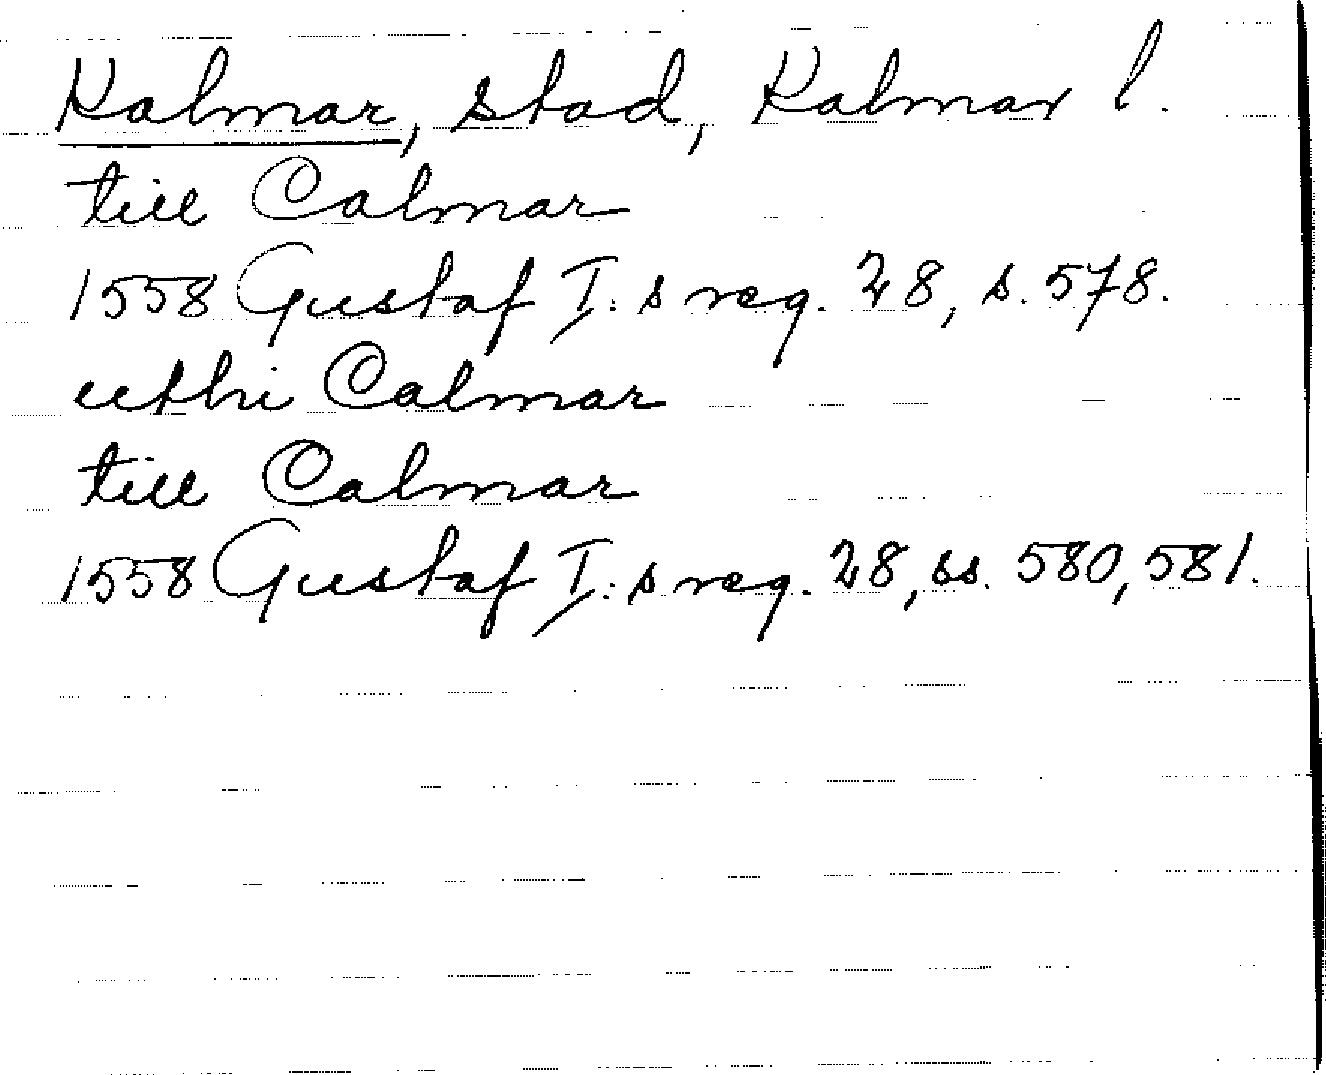 Kalmar, stad, Kalmar l.
till Calmar
1558 Gustaf I: s reg. 28, s. 578.
uthi Calmar
till Calmar
1558 Gustaf I: s reg. 28, ss. 580, 581.